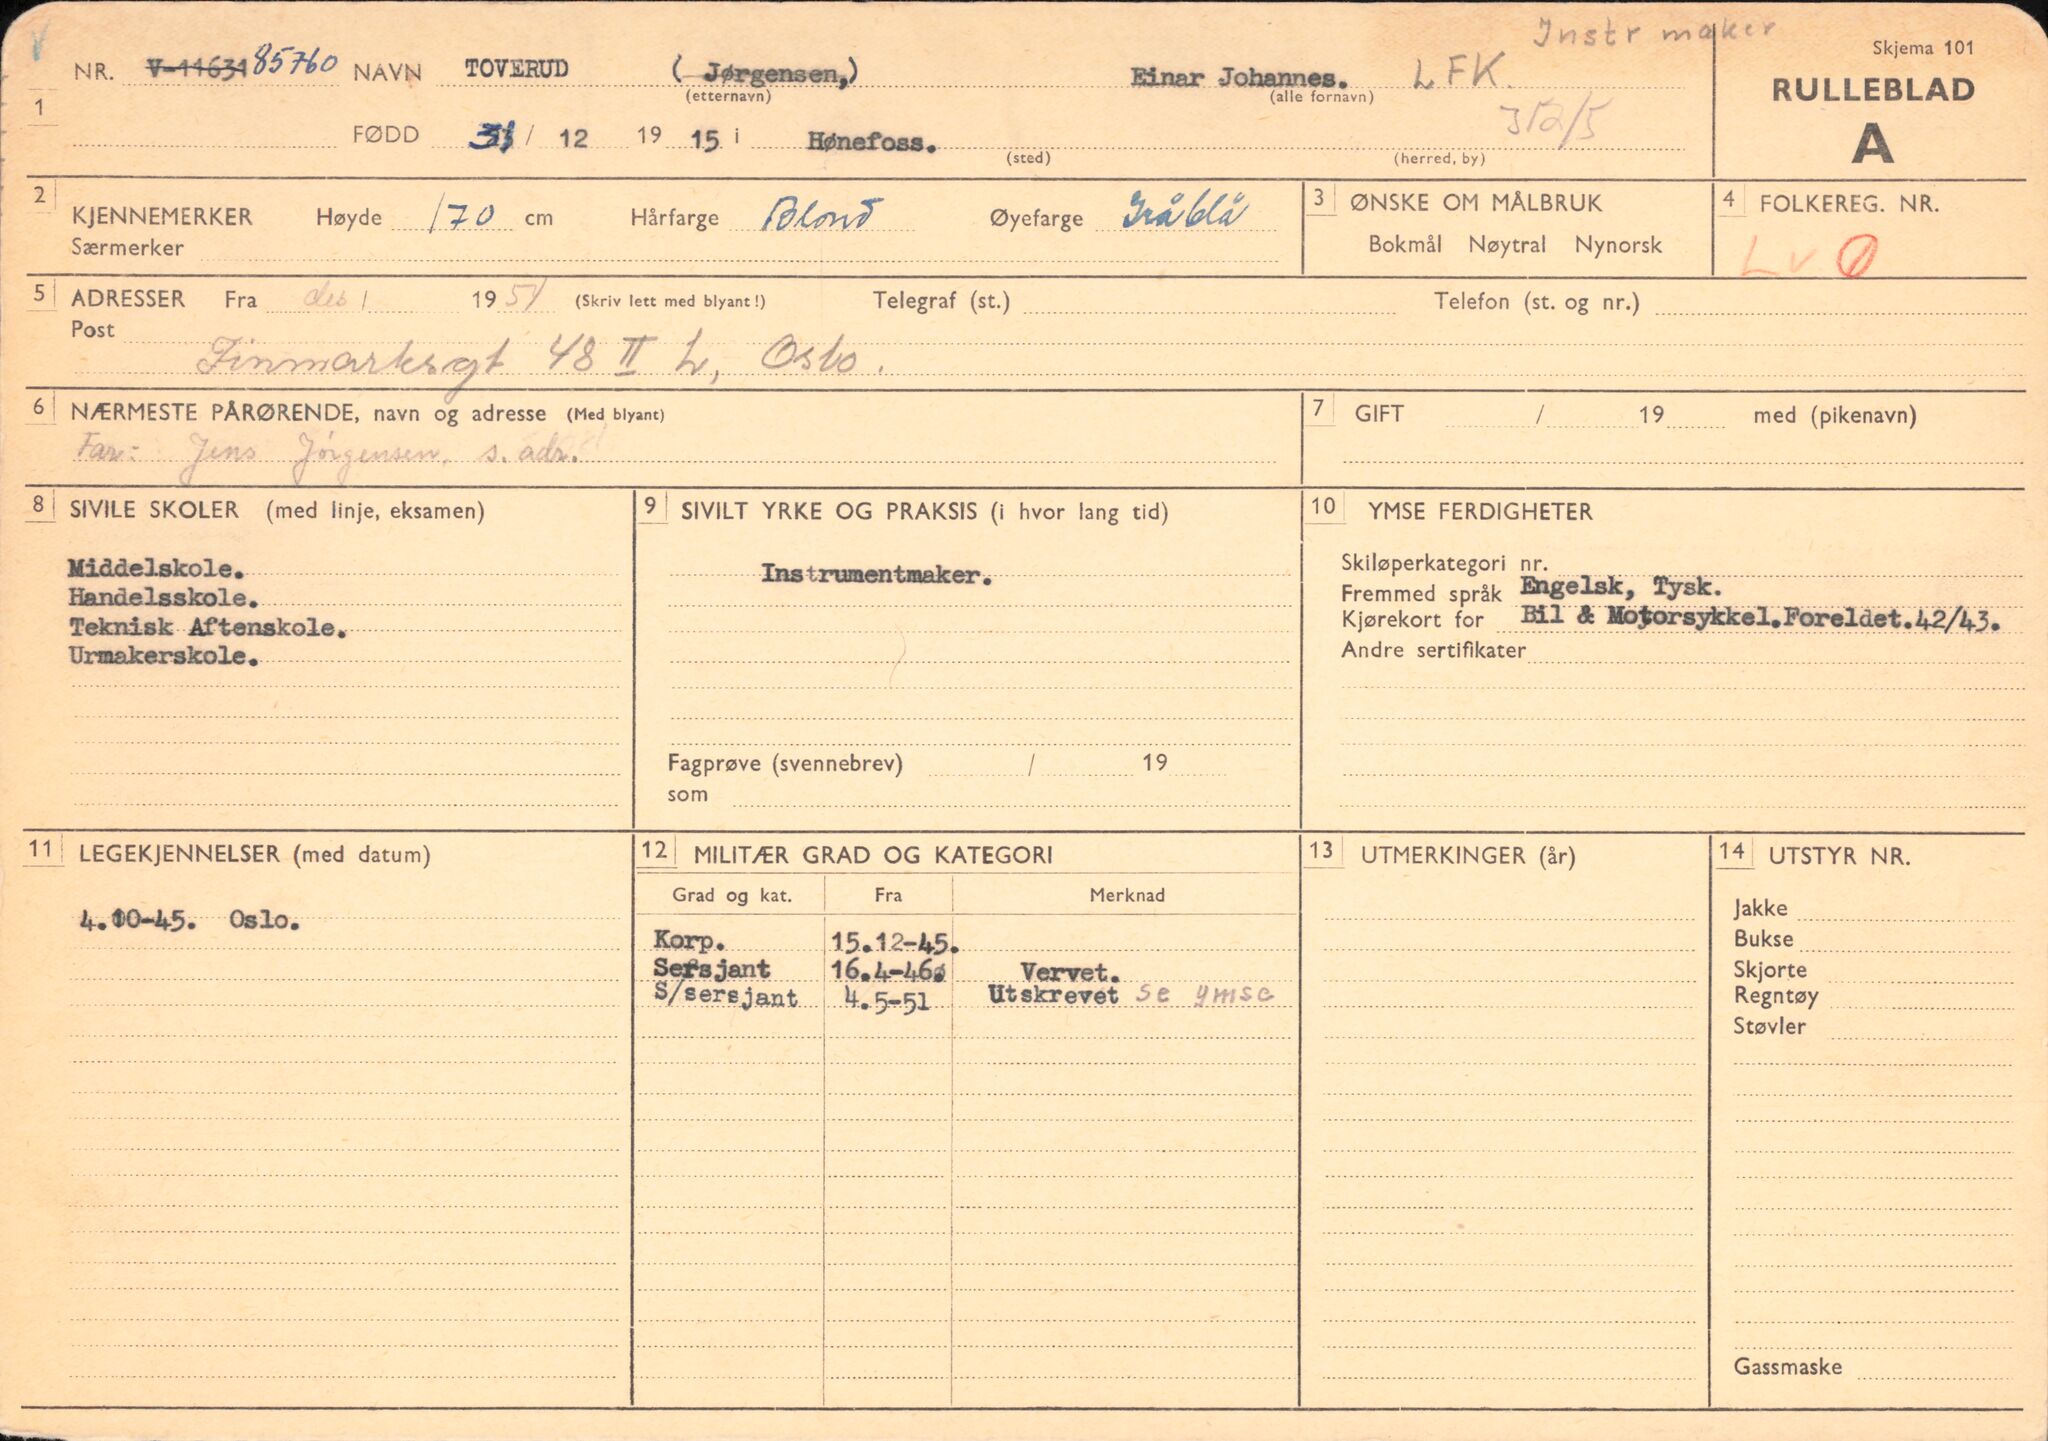 Instr maker
Skjema 101
NR. V-11631 85760 NAVN TOVERUD (Jørgensen,) Einar Johannes. LFK.
(etternavn) (alle fornavn)
RULLEBLAD
A
1
FØDD / 12 19 15 i Hønefoss. 352/5
(sted) (herred, by)
2 KJENNEMERKER Høyde 170 cm Hårfarge Blond Øyefarge Gråblå
Særmerker
3 ØNSKE OM MÅLBRUK
Bokmål Nøytral Nynorsk
4 FOLKEREG. NR.
LV Ø
5 ADRESSER Fra des / 1951 (Skriv lett med blyant!) Telegraf (st.) Telefon (st. og nr.)
Post
Finmarksgt 48 II L, Oslo.
6 NÆRMESTE PÅRØRENDE, navn og adresse (Med blyant)
Far: Jens Jørgensen, s. adr.
7 GIFT / 19 med (pikenavn)
8 SIVILE SKOLER (med linje, eksamen)
Middelskole.
Handelsskole.
Teknisk Aftenskole.
Urmakerskole.
9 SIVILT YRKE OG PRAKSIS (i hvor lang tid)
Instrumentmaker.
Fagprøve (svennebrev) / 19
som
10 YMSE FERDIGHETER
Skiløperkategori nr.
Fremmed språk Engelsk, Tysk.
Kjørekort for Bil & Motorsykkel.Foreldet.42/43.
Andre sertifikater
11 LEGEKJENNELSER (med datum)
4.10-45. Oslo.
12 MILITÆR GRAD OG KATEGORI
Grad og kat. Fra Merknad
Korp. 15.12-45.
Sersjant 16.4-46. Vervet.
S/sersjant 4.5-51 Utskrevet se ymse
13 UTMERKINGER (år)
14 UTSTYR NR.
Jakke
Bukse
Skjorte
Regntøy
Støvler
Gassmaske